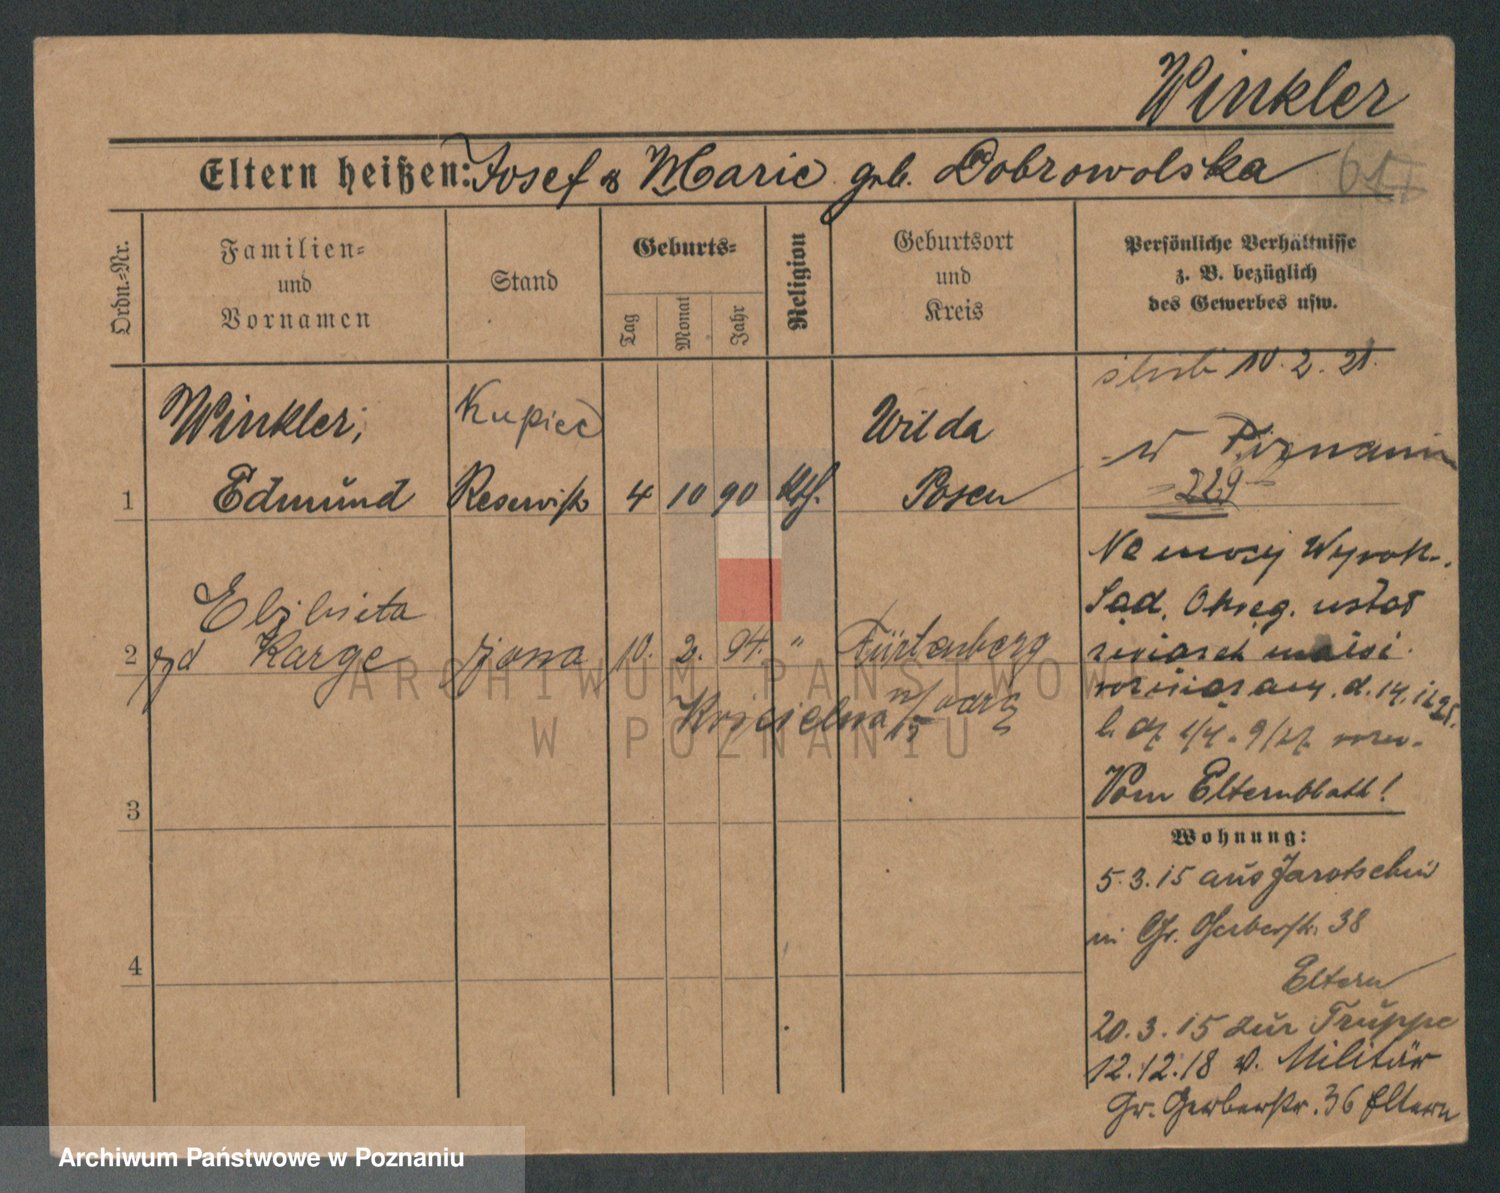 Winkler
Eltern heißen: Josef & Marie geb. Dobrowolska
Ordn.-Nr.
Familien-
und
Vornamen
Stand
Geburts-
Tag
Monat
Jahr
Religion
Geburtsort
und
Kreis
Persönliche Verhältnisse
z. B. bezüglich
des Gewerbes usw.
10. 2. 21.
Winkler,
Kupiec
Wilda
w Poznaniu
1 Edmund Reservist 4 10 90 kth. Posen
229
Na mocy Wyrok.
Sąd. Okręg. został
Elżbieta
2 Karge żona 10. 2. 94. " Fürstenberg
n/Odrą
15
d. 14.
Vom Elternblatt!
3
Wohnung:
5.3.15 aus Jarotschin
in Gr. Gerberstr. 38
4
Eltern
20.3.15 zur Truppe
12.12.18 v. Militär
Gr. Gerberstr. 36 Eltern
ARCHIWUM PAŃSTWOWE
W POZNANIU
Archiwum Państwowe w Poznaniu